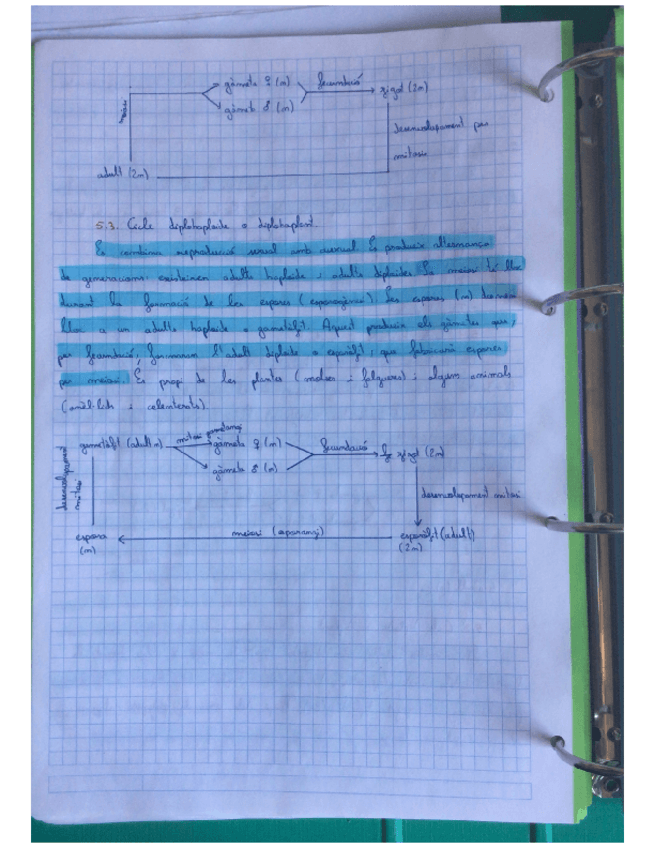 gàmeta ♀ (n) fecundació
zigot (2n)
gàmeta ♂ (n)
meiosi
desenvolupament per
mitosi
adult (2n)
5.3. Cicle diplohaploide o diplohaplont.
Es combina reproducció sexual amb asexual. Es produeix alternança
de generacions: existeixen adults haploides i adults diploides. La meiosi té lloc
durant la formació de les espores (esporogènesi). Les espores (n) donen
lloc a un adult haploide o gametòfit. Aquest produeix els gàmetes que,
per fecundació, formaran l'adult diploide o esporòfit, que fabricarà espores
per meiosi. És propi de les plantes (molses i falgueres) i algun animals
(anèl·lids i celenterats).
gametòfit (adult n) mitosi gametangi gàmeta ♀ (n) fecundació zigot (2n)
gàmeta ♂ (n)
desenvolupament
mitosi
desenvolupament mitosi
espora meiosi (esporangi) esporòfit (adult)
(n) (2n)